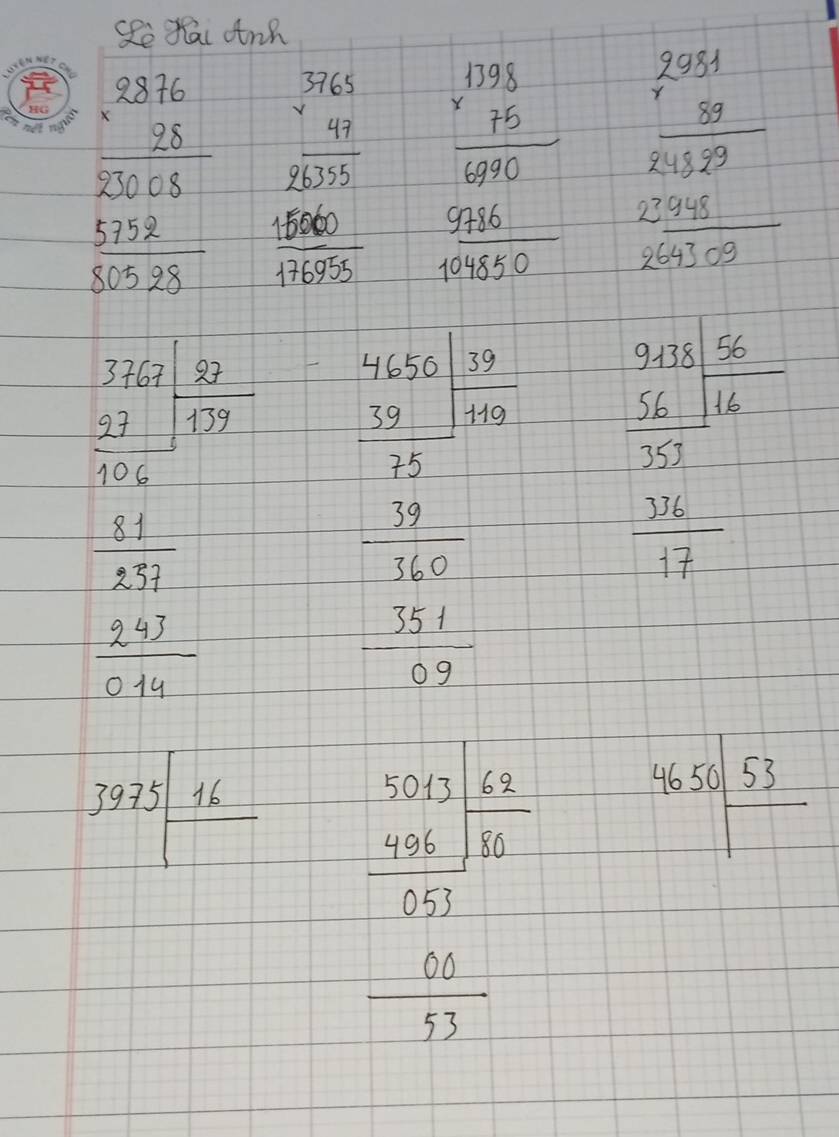 Lê Hải Anh
LUYỆN NÉT CHỮ
HG
Rèn nết người
2876 3765 1398 2981
x 28 x 47 x 75 x 89
23008 26355 6990 24829
5752 15060 9786 23948
80528 176955 104850 264309
3767 27 4650 39 9138 56
27 139 39 119 56 16
106 75 353
81 39 336
257 360 17
243 351
014 09
3975 16 5013 62 4650 53
496 80
053
00
53